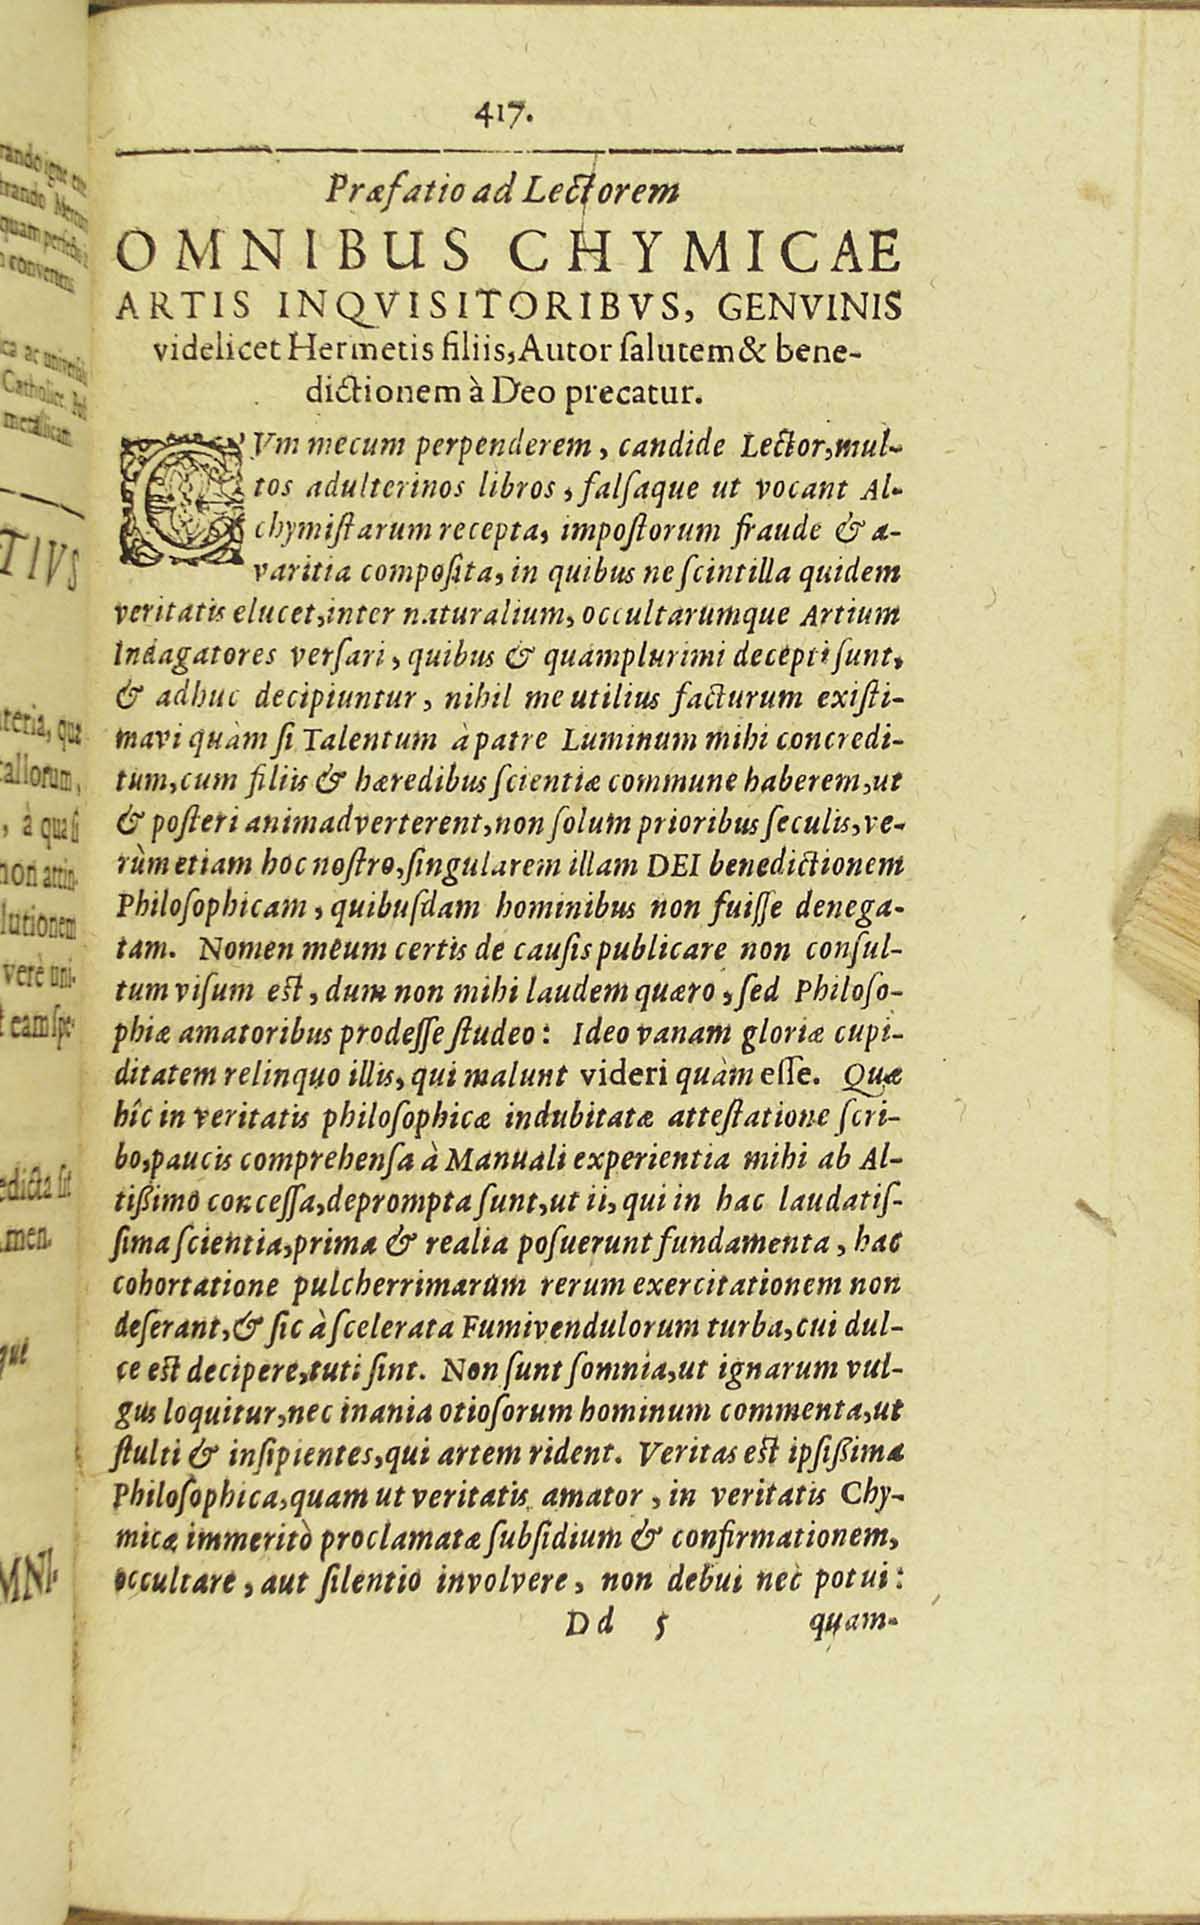 417.
Præfatio ad Lectorem
OMNIBUS CHYMICAE
ARTIS INQVISITORIBVS, GENVINIS
videlicet Hermetis filiis, Autor ſalutem & bene-
dictionem à Deo precatur.
CVm mecum perpenderem, candide Lector, mul-
tos adulterinos libros, falſaque ut vocant Al-
chymiſtarum recepta, impoſtorum fraude & a-
varitia compoſita, in quibus ne ſcintilla quidem
veritatis elucet, inter naturalium, occultarumque Artium
Indagatores verſari, quibus & quamplurimi decepti ſunt,
& adhuc decipiuntur, nihil me utilius facturum exiſti-
mavi quàm ſi Talentum à patre Luminum mihi concredi-
tum, cum filiis & hæredibus ſcientiæ commune haberem, ut
& poſteri animadverterent, non ſolum prioribus ſeculis, ve-
rùm etiam hoc noſtro, ſingularem illam DEI benedictionem
Philoſophicam, quibuſdam hominibus non fuiſſe denega-
tam. Nomen meum certis de cauſis publicare non conſul-
tum viſum eſt, dum non mihi laudem quæro, ſed Philoſo-
phiæ amatoribus prodeſſe ſtudeo: Ideo vanam gloriæ cupi-
ditatem relinquo illis, qui malunt videri quàm eſſe. Quæ
hîc in veritatis philoſophicæ indubitatæ atteſtatione ſcri-
bo, paucis comprehenſa à Manuali experientia mihi ab Al-
tißimo conceſſa, deprompta ſunt, ut ii, qui in hac laudatiſ-
ſima ſcientia, prima & realia poſuerunt fundamenta, hac
cohortatione pulcherrimarum rerum exercitationem non
deſerant, & ſic à ſcelerata Fumivendulorum turba, cui dul-
ce eſt decipere, tuti ſint. Non ſunt ſomnia, ut ignarum vul-
gus loquitur, nec inania otioſorum hominum commenta, ut
ſtulti & inſipientes, qui artem rident. Veritas eſt ipſißima
Philoſophica, quam ut veritatis amator, in veritatis Chy-
micæ immeritò proclamatæ ſubſidium & confirmationem,
occultare, aut ſilentio involvere, non debui nec potui:
Dd 5 quam-